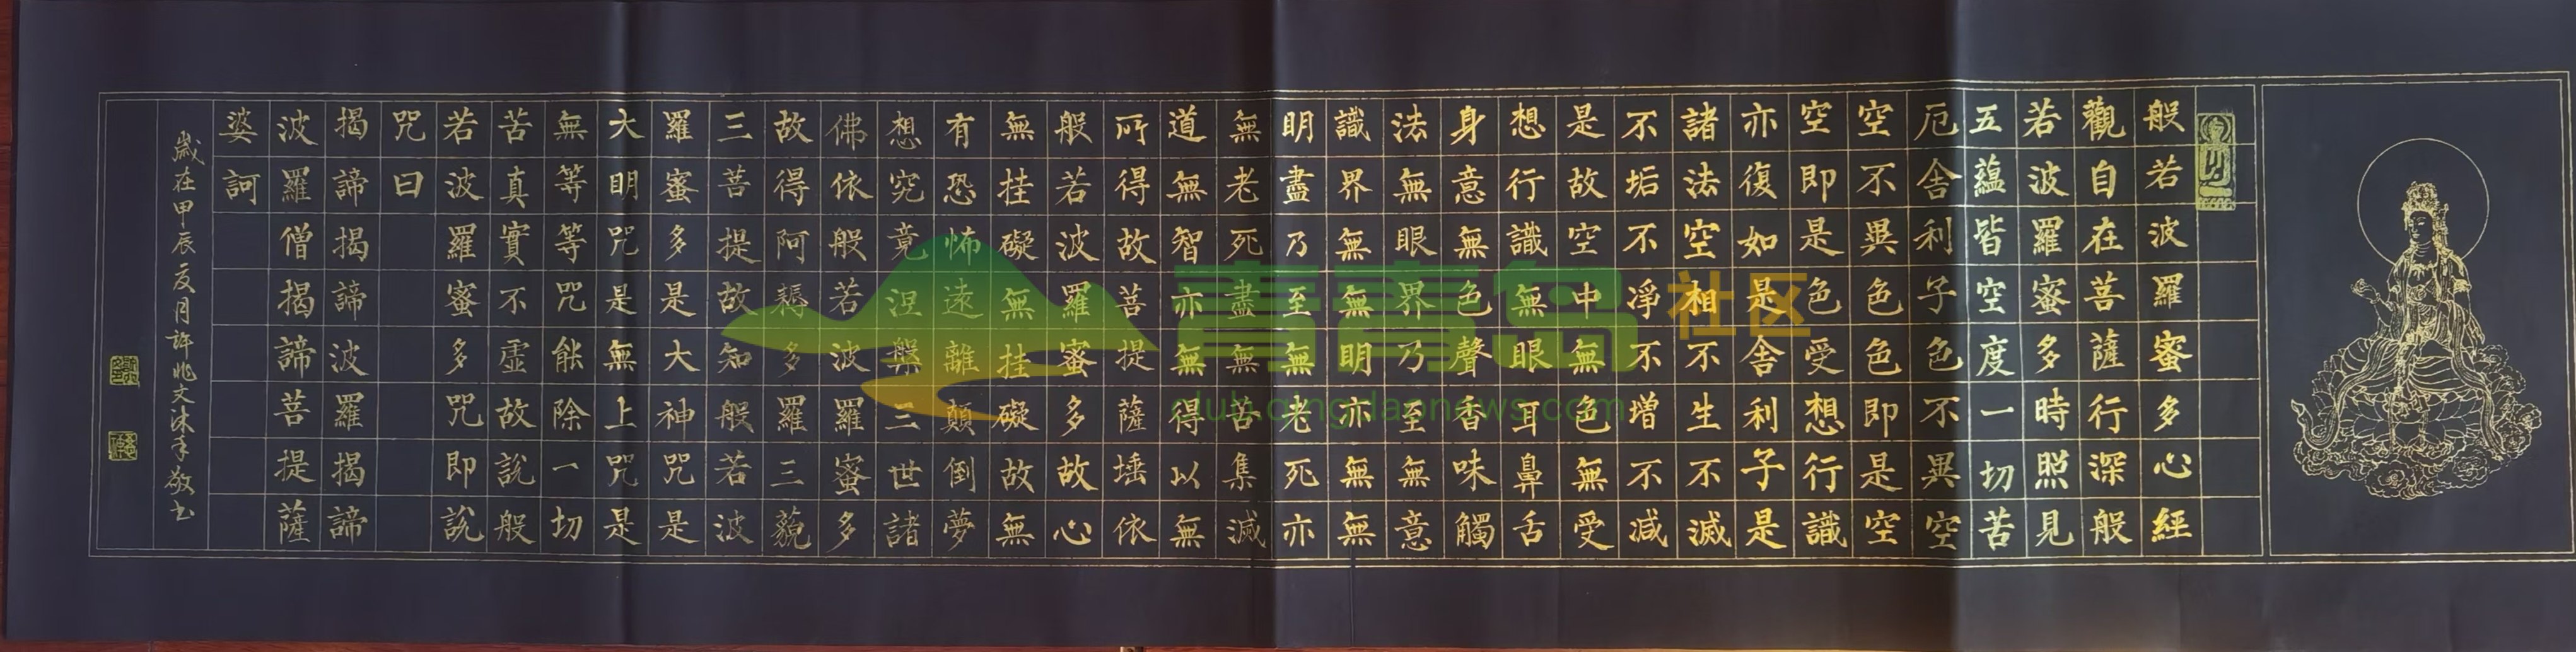 般若波羅蜜多心經
觀自在菩薩行深般
若波羅蜜多時照見
五蘊皆空度一切苦
厄舍利子色不異空
空不異色色即是空
空即是色受想行識
亦復如是舍利子是
諸法空相不生不滅
不垢不凈不增不减
是故空中無色無受
想行識無眼耳鼻舌
身意無色聲香味觸
法無眼界乃至無意
識界無無明亦無無
明盡乃至無老死亦
無老死盡無苦集滅
道無智亦無得以無
所得故菩提薩埵依
般若波羅蜜多故心
無挂礙無挂礙故無
有恐怖遠離顛倒夢
想究竟涅槃三世諸
佛依般若波羅蜜多
故得阿耨多羅三藐
三菩提故知般若波
羅蜜多是大神咒是
大明咒是無上咒是
無等等咒能除一切
苦真實不虛故說般
若波羅蜜多咒即說
咒曰
揭諦揭諦波羅揭諦
波羅僧揭諦菩提薩
婆訶
歲在甲辰夏月許兆文沐手敬书
青青岛社区
club.qingdaonews.com